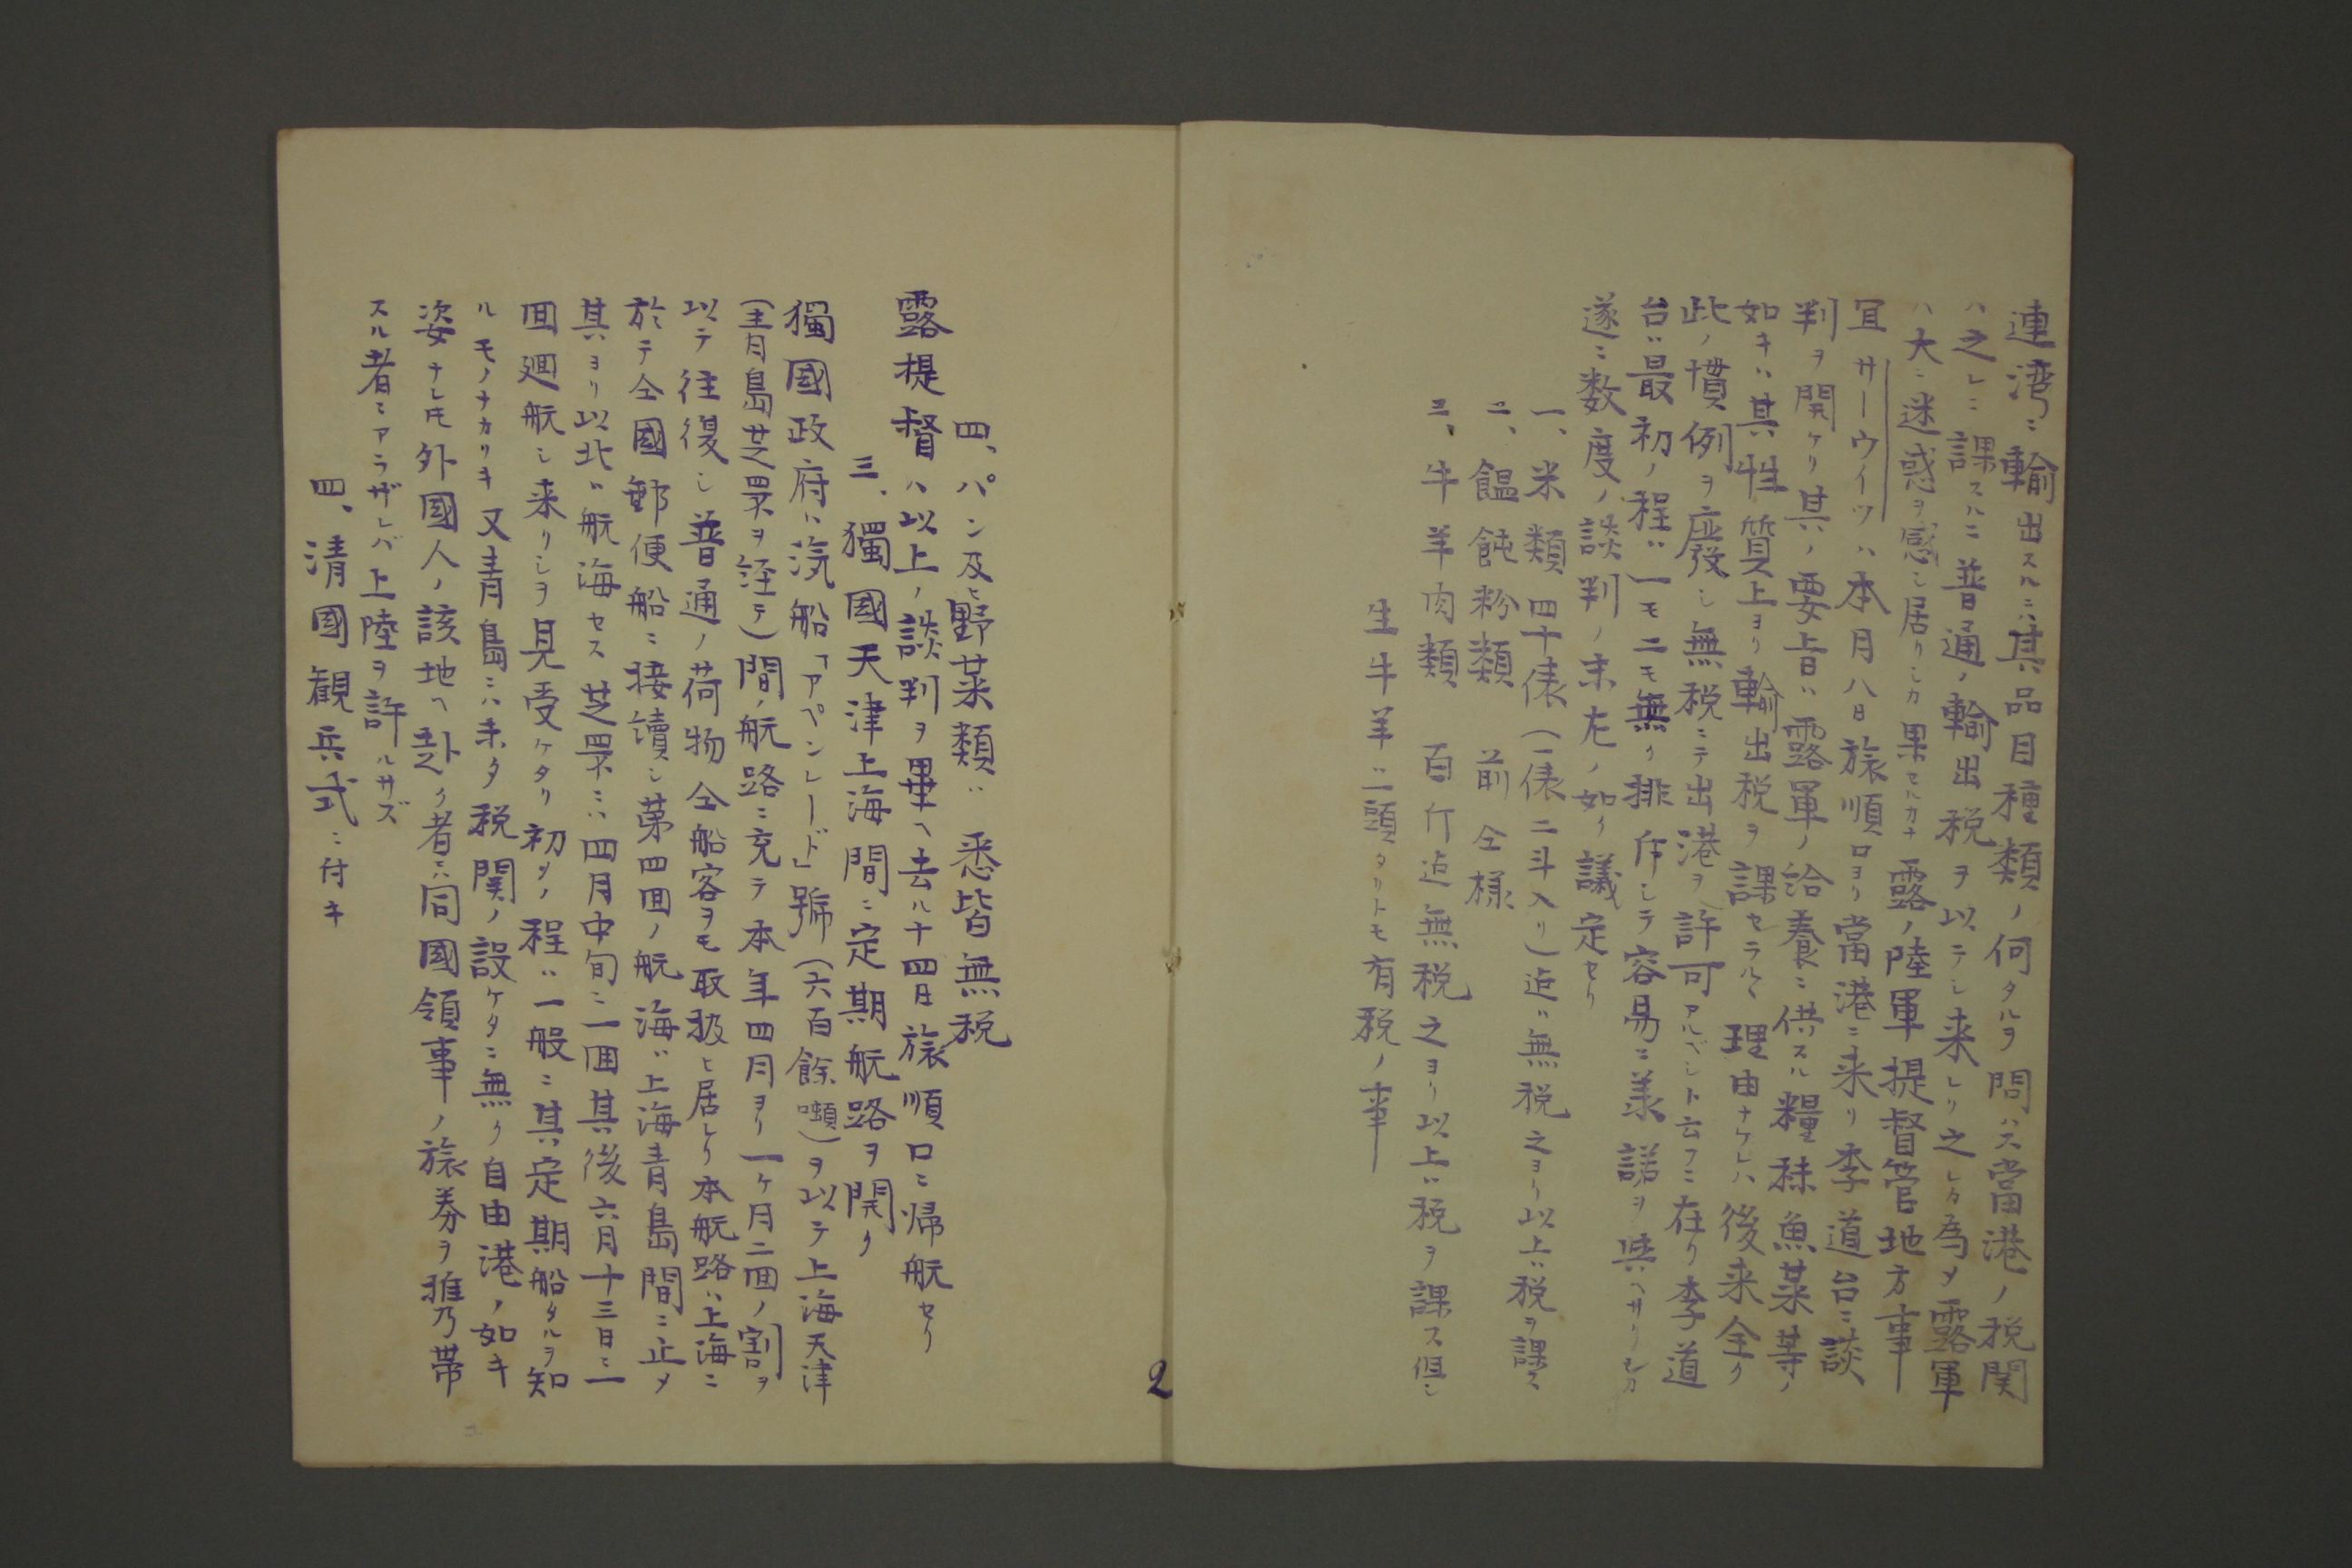 連湾ニ輸出スルニハ其品目種類ノ何タルヲ問ハズ當港ノ税関
ハ之レニ課スルニ普通ノ輸出税ヲ以テシ来レリ之レカ為メ露軍
ハ大ニ迷惑ヲ感シ居リシカ果セルカナ露ノ陸軍提督管地方事
宜サーウイツハ本月八日旅順口ヨリ當港ニ来リ李道台ニ談
判ヲ開ケリ其ノ要旨ハ露軍ノ給養ニ供スル糧秣魚菜等ノ
如キハ其性質上ヨリ輸出税ヲ課セラルヽ理由ナケレハ後来全ク
此ノ慣例ヲ廢シ無税ニテ出港ヲ許可アルベシト云フニ在リ李道
台ハ最初ノ程ハ一モ二モ無ク排斥シテ容易ニ承諾ヲ與ヘサリシカ
遂ニ数度ノ談判ノ末左ノ如ク議定セリ
一、米類四十俵(一俵二斗入リ)迄ハ無税之ヨリ以上ハ税ヲ課ス
二、饂飩粉類 前仝様
三、牛羊肉類 百斤迄無税之ヨリ以上ハ税ヲ課ス但シ
生牛羊ハ一頭タリトモ有税ノ事
四、パン及ヒ野菜類ハ悉皆無税
露提督ハ以上ノ談判ヲ畢ヘ去ル十四日旅順口ニ帰航セリ
三、獨國天津上海間ニ定期航路ヲ開ク
獨國政府ハ汽船「アペンレード」號(六百餘噸)ヲ以テ上海天津
(青島芝罘ヲ経テ)間ノ航路ニ充テ本年四月ヨリ一ヶ月二回ノ割ヲ
以テ往復シ普通ノ荷物仝船客ヲモ取扱ヒ居レリ本航路ハ上海ニ
於テ仝國郵便船ニ接續シ第四回ノ航海ハ上海青島間ニ止メ
其ヨリ以北ハ航海セス芝罘ニハ四月中旬ニ一回其後六月十三日ニ一
回廻航シ来リシヲ見受ケタリ初メノ程ハ一般ニ其定期船タルヲ知
ルモノナカリキ又青島ニハ未タ税関ノ設ケタニ無ク自由港ノ如キ
姿ナレ𪜈外國人ノ該地ヘ赴ク者ニハ同國領事ノ旅券ヲ携帯
スル者ニアラザレバ上陸ヲ許ルサズ
四、清國観兵式ニ付キ
2